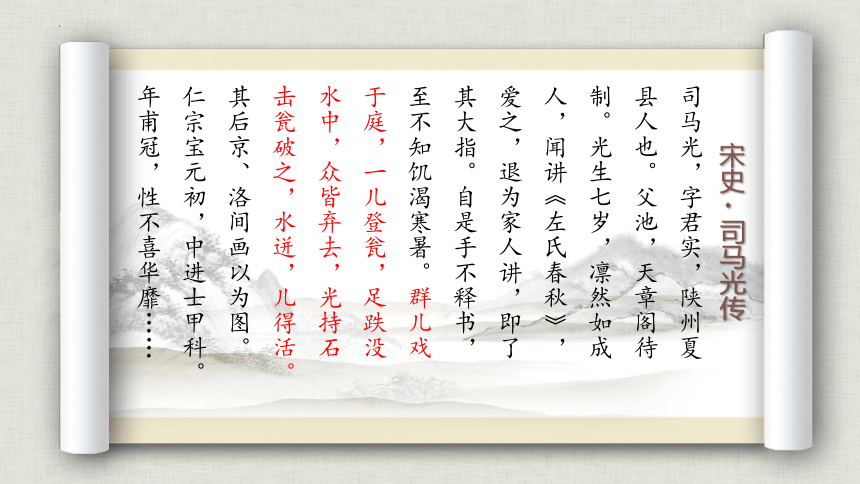 宋史·司马光传
司马光，字君实，陕州夏
县人也。父池，天章阁待
制。光生七岁，凛然如成
人，闻讲《左氏春秋》，
爱之，退为家人讲，即了
其大指。自是手不释书，
至不知饥渴寒暑。群儿戏
于庭，一儿登瓮，足跌没
水中，众皆弃去，光持石
击瓮破之，水迸，儿得活。
其后京、洛间画以为图。
仁宗宝元初，中进士甲科。
年甫冠，性不喜华靡……